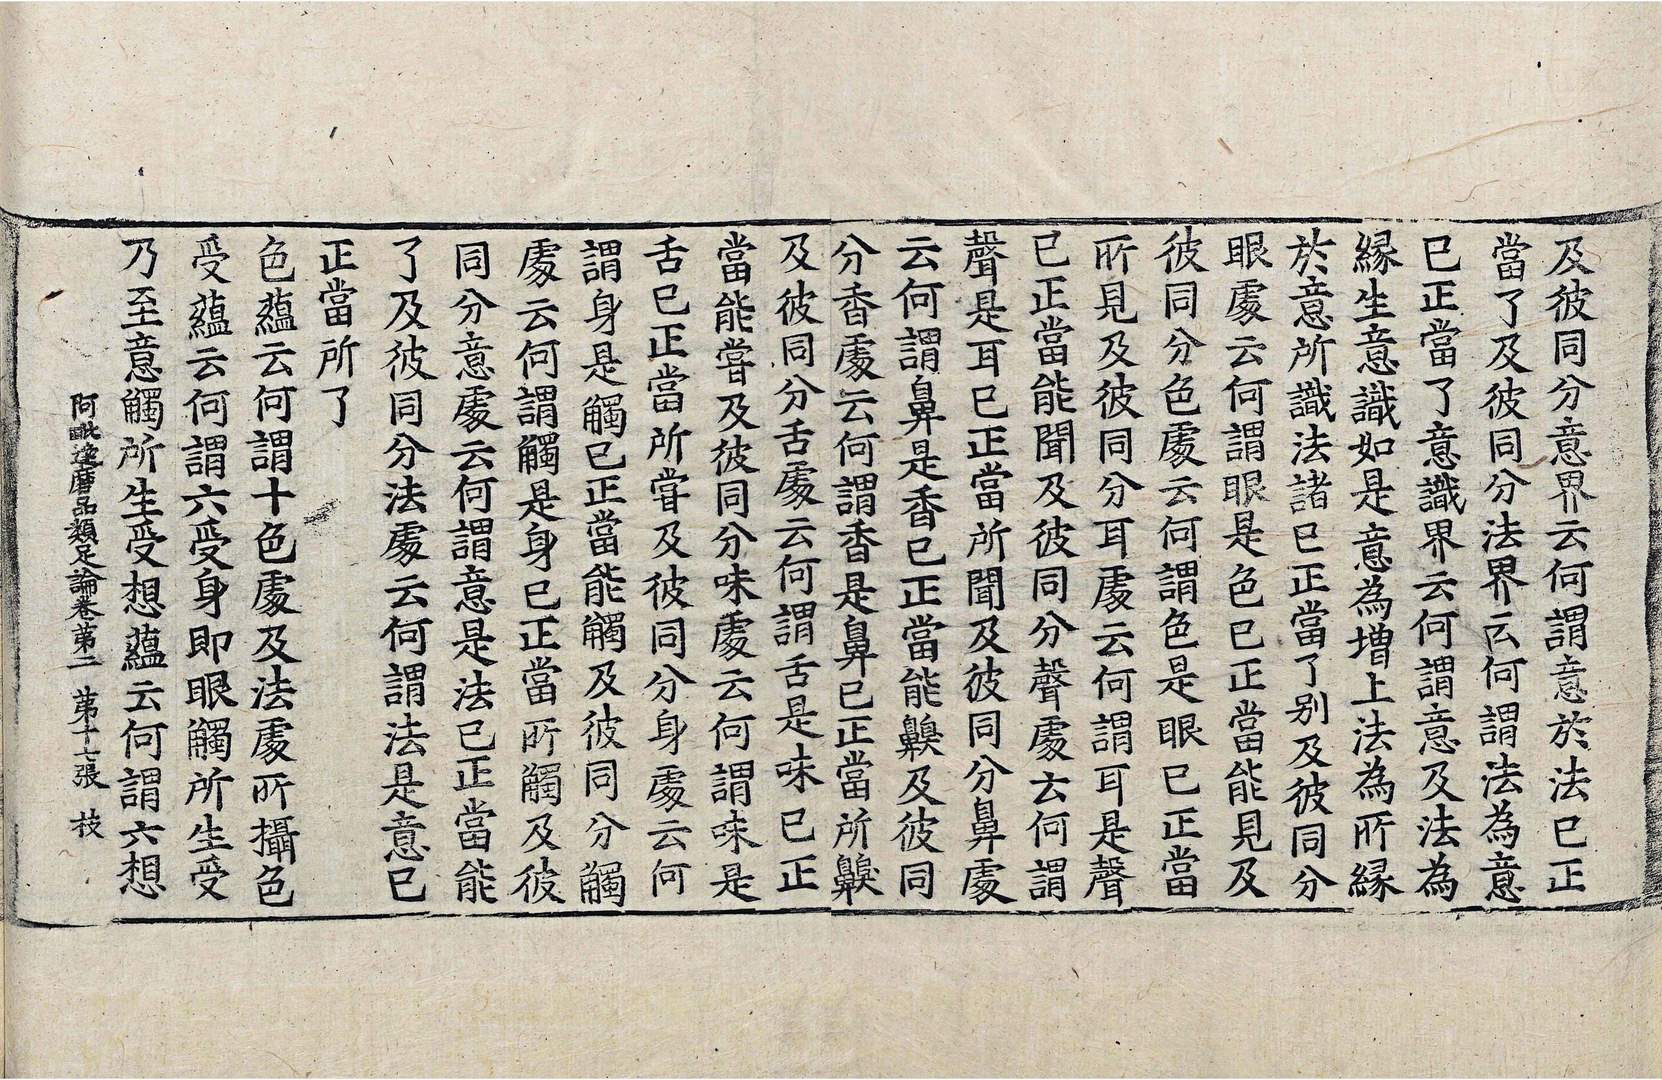 及彼同分意界云何謂意於法已正
當了及彼同分法界云何謂法為意
已正當了意識界云何謂意及法為
緣生意識如是意為增上法為所緣
於意所識法諸已正當了別及彼同分
眼處云何謂眼是色已正當能見及
彼同分色處云何謂色是眼已正當
所見及彼同分耳處云何謂耳是聲
已正當能聞及彼同分聲處云何謂
聲是耳已正當所聞及彼同分鼻處
云何謂鼻是香已正當能齅及彼同
分香處云何謂香是鼻已正當所齅
及彼同分舌處云何謂舌是味已正
當能嘗及彼同分味處云何謂味是
舌已正當所嘗及彼同分身處云何
謂身是觸已正當能觸及彼同分觸
處云何謂觸是身已正當所觸及彼
同分意處云何謂意是法已正當能
了及彼同分法處云何謂法是意已
正當所了
色蘊云何謂十色處及法處所攝色
受蘊云何謂六受身即眼觸所生受
乃至意觸所生受想蘊云何謂六想
阿毗達磨品類足論卷第二 第十七張 枝